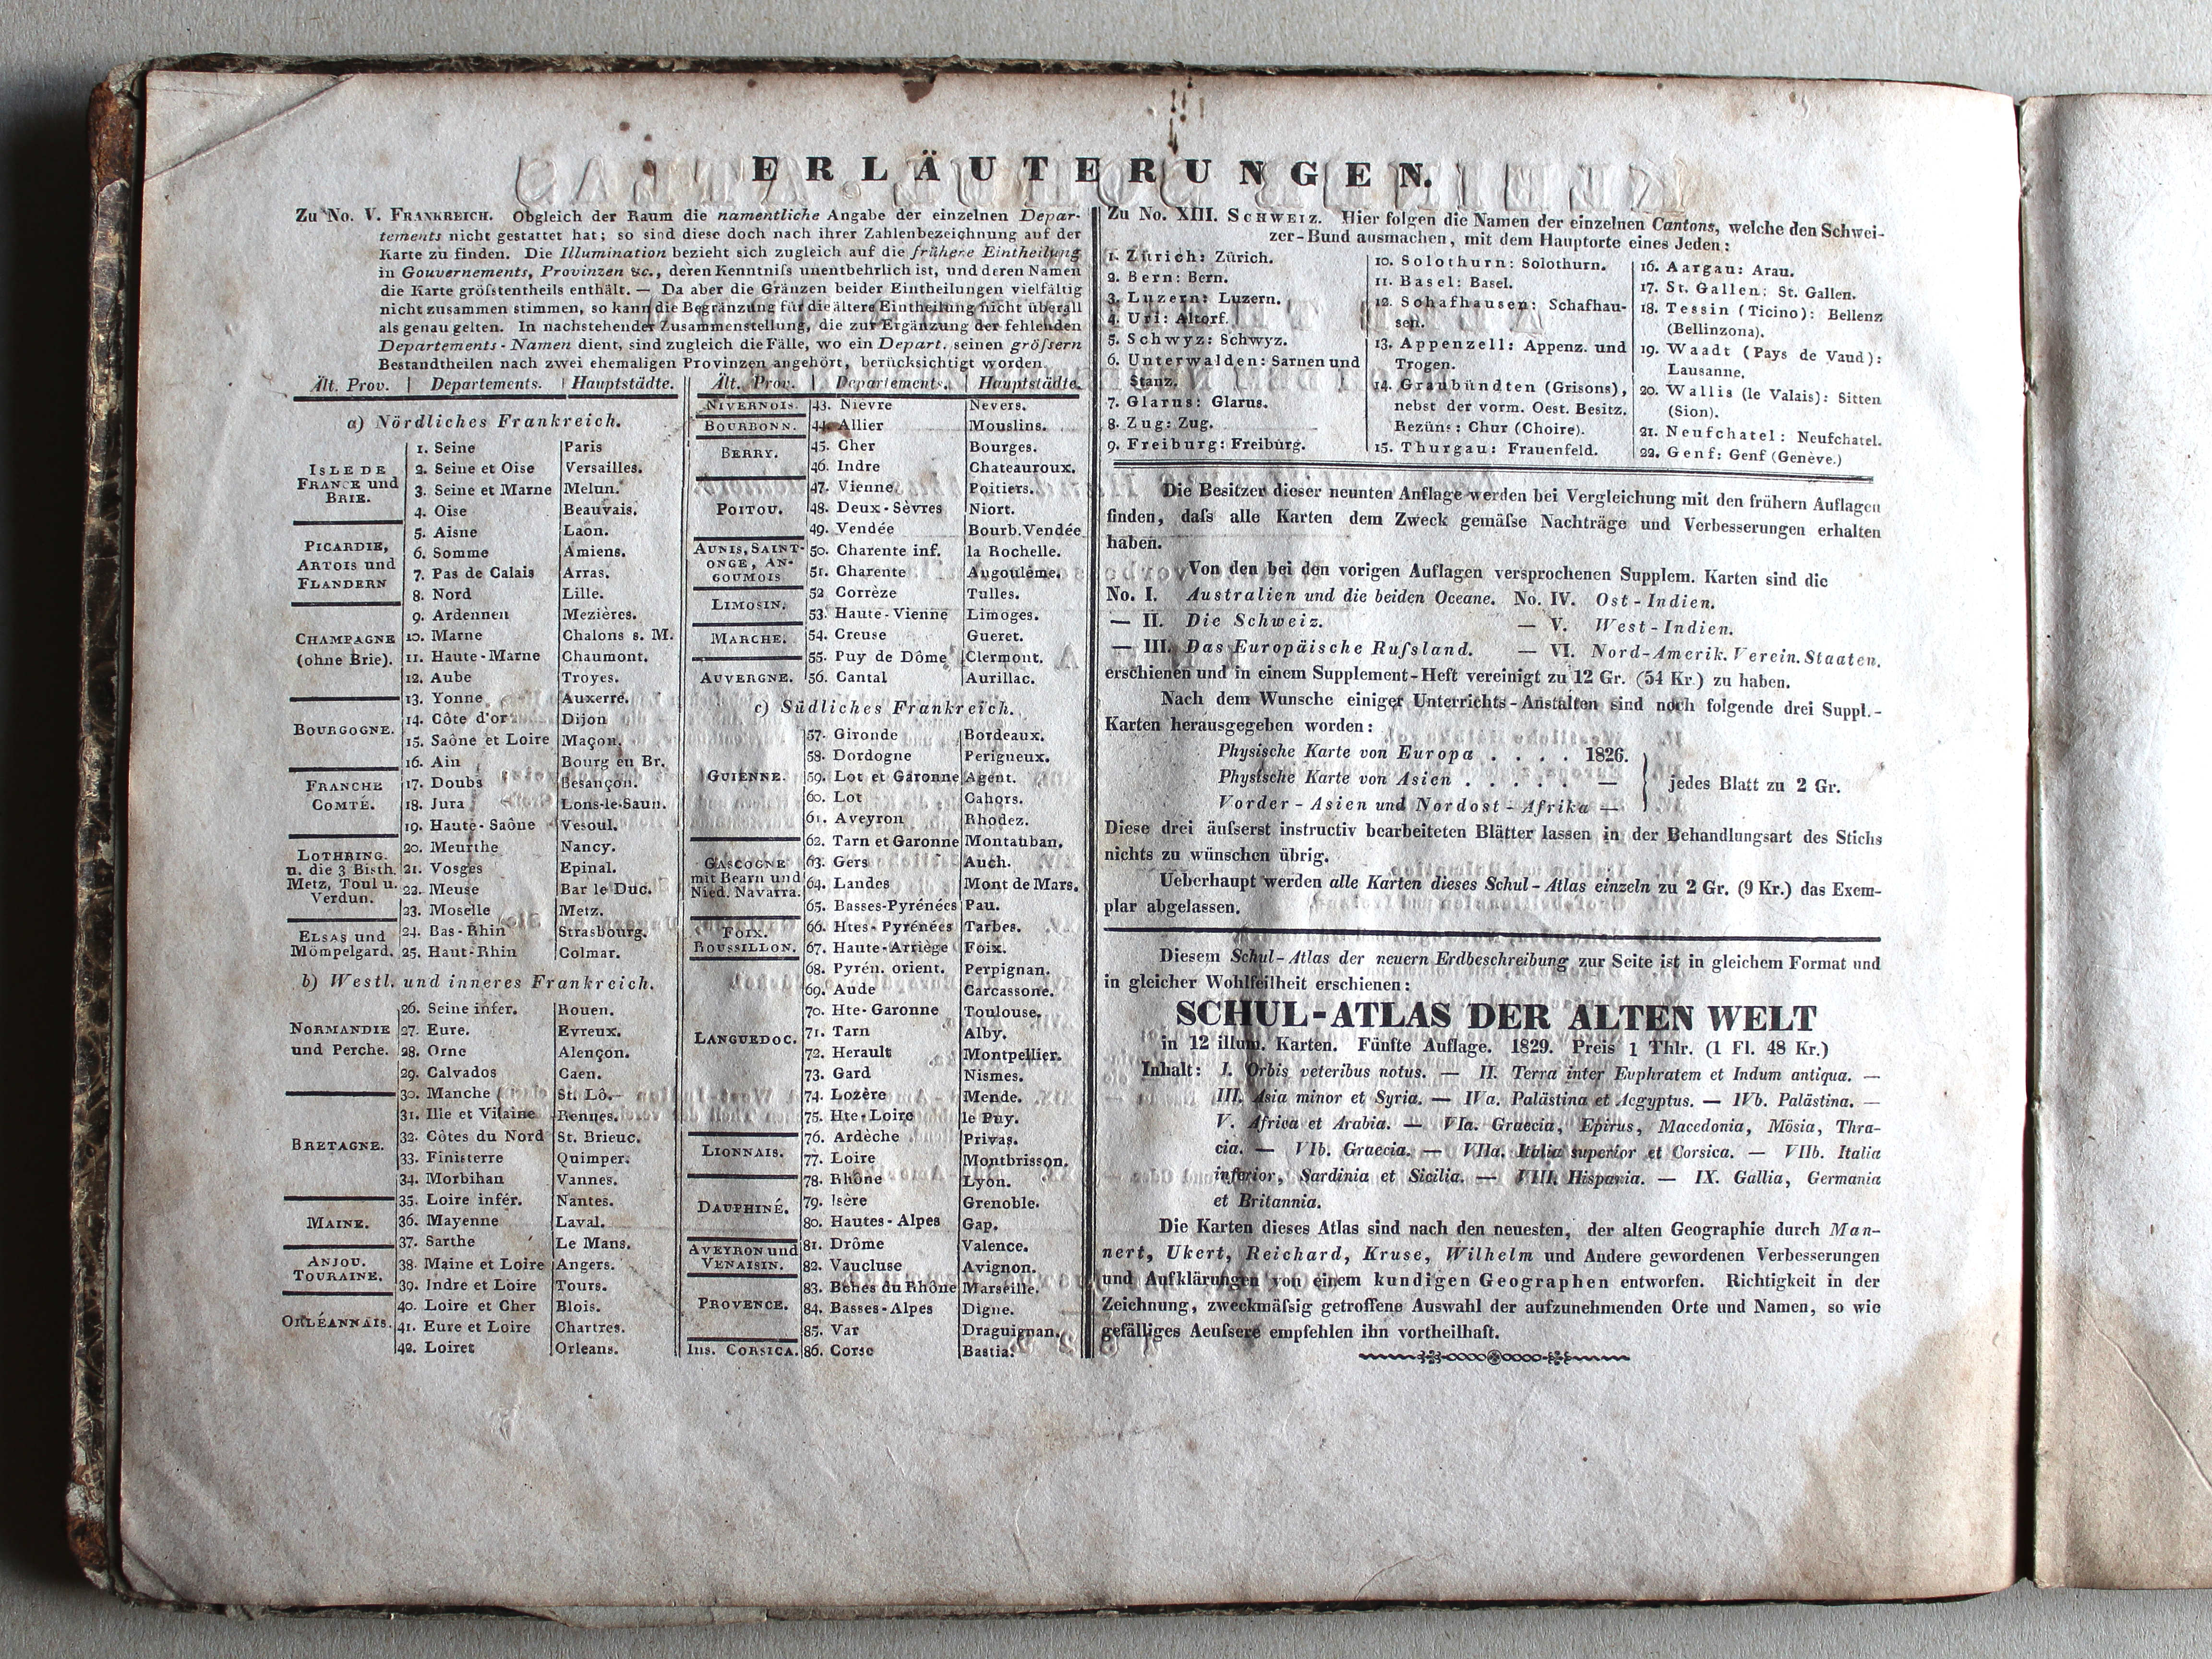 ERLÄUTERUNGEN.
Zu No. V. FRANKREICH. Obgleich der Raum die namentliche Angabe der einzelnen Depar-
tements nicht gestattet hat; so sind diese doch nach ihrer Zahlenbezeichnung auf der
Karte zu finden. Die Illumination bezieht sich zugleich auf die frühere Eintheilung
in Gouvernements, Provinzen &c., deren Kenntniſs unentbehrlich ist, und deren Namen
die Karte gröſstentheils enthält. — Da aber die Gränzen beider Eintheilungen vielfältig
nicht zusammen stimmen, so kann die Begränzung für die ältere Eintheilung nicht überall
als genau gelten. In nachstehender Zusammenstellung, die zur Ergänzung der fehlenden
Departements-Namen dient, sind zugleich die Fälle, wo ein Depart. seinen gröſsern
Bestandtheilen nach zwei ehemaligen Provinzen angehört, berücksichtigt worden.
Ält. Prov. | Departements. | Hauptstädte.
a) Nördliches Frankreich.
ISLE DE
FRANCE und
BRIE.
1. Seine Paris
2. Seine et Oise Versailles.
3. Seine et Marne Melun.
4. Oise Beauvais.
PICARDIE,
ARTOIS und
FLANDERN
5. Aisne Laon.
6. Somme Amiens.
7. Pas de Calais Arras.
8. Nord Lille.
CHAMPAGNE
(ohne Brie).
9. Ardennen Mezières.
10. Marne Chalons s. M.
11. Haute-Marne Chaumont.
12. Aube Troyes.
BOURGOGNE.
13. Yonne Auxerre.
14. Côte d'or Dijon
15. Saône et Loire Maçon.
16. Ain Bourg en Br.
FRANCHE
COMTÉ.
17. Doubs Besançon.
18. Jura Lons-le-Saun.
19. Haute-Saône Vesoul.
LOTHRING.
u. die 3 Bisth.
Metz, Toul u.
Verdun.
20. Meurthe Nancy.
21. Vosges Epinal.
22. Meuse Bar le Duc.
23. Moselle Metz.
ELSAS und
Mömpelgard.
24. Bas-Rhin Strasbourg.
25. Haut-Rhin Colmar.
b) Westl. und inneres Frankreich.
NORMANDIE
und Perche.
26. Seine infer. Rouen.
27. Eure. Evreux.
28. Orne Alençon.
29. Calvados Caen.
30. Manche St. Lô.
BRETAGNE.
31. Ille et Vilaine Rennes.
32. Côtes du Nord St. Brieuc.
33. Finisterre Quimper.
34. Morbihan Vannes.
35. Loire infér. Nantes.
MAINE.
36. Mayenne Laval.
37. Sarthe Le Mans.
ANJOU.
TOURAINE.
38. Maine et Loire Angers.
39. Indre et Loire Tours.
ORLÉANNAIS.
40. Loire et Cher Blois.
41. Eure et Loire Chartres.
42. Loiret Orleans.
Ält. Prov. | Departements. | Hauptstädte.
NIVERNOIS. 43. Nièvre Nevers.
BOURBONN. 44. Allier Mouslins.
BERRY.
45. Cher Bourges.
46. Indre Chateauroux.
POITOU.
47. Vienne Poitiers.
48. Deux-Sèvres Niort.
49. Vendée Bourb.Vendée
AUNIS, SAINT-
ONGE, AN-
GOUMOIS
50. Charente inf. la Rochelle.
51. Charente Augoulême.
LIMOSIN.
52 Corrèze Tulles.
53. Haute-Vienne Limoges.
MARCHE.
54. Creuse Gueret.
55. Puy de Dôme Clermont.
AUVERGNE. 56. Cantal Aurillac.
c) Südliches Frankreich.
GUIENNE.
57. Gironde Bordeaux.
58. Dordogne Perigueux.
59. Lot et Garonne Agent.
60. Lot Cahors.
61. Aveyron Rhodez.
62. Tarn et Garonne Montauban.
GASCOGNE
mit Bearn und
Nied. Navarra.
63. Gers Auch.
64. Landes Mont de Mars.
65. Basses-Pyrénées Pau.
66. Htes-Pyrénées Tarbes.
FOIX.
ROUSSILLON.
67. Haute-Arriège Foix.
68. Pyrén. orient. Perpignan.
LANGUEDOC.
69. Aude Carcassone.
70. Hte-Garonne Toulouse.
71. Tarn Alby.
72. Herault Montpellier.
73. Gard Nismes.
74. Lozère Mende.
75. Hte-Loire le Puy.
76. Ardèche Privas.
LIONNAIS.
77. Loire Montbrisson.
78. Rhône Lyon.
DAUPHINÉ.
79. Isère Grenoble.
80. Hautes-Alpes Gap.
81. Drôme Valence.
AVEYRON und
VENAISIN.
82. Vaucluse Avignon.
PROVENCE.
83. Bches du Rhône Marseille.
84. Basses-Alpes Digne.
85. Var Draguignan.
Ins. CORSICA. 86. Corse Bastia.
Zu No. XIII. SCHWEIZ. Hier folgen die Namen der einzelnen Cantons, welche den Schwei-
zer-Bund ausmachen, mit dem Hauptorte eines Jeden:
1. Zürich: Zürich.
2. Bern: Bern.
3. Luzern: Luzern.
4. Uri: Altorf.
5. Schwyz: Schwyz.
6. Unterwalden: Sarnen und
Stanz.
7. Glarus: Glarus.
8. Zug: Zug.
9. Freiburg: Freiburg.
10. Solothurn: Solothurn.
11. Basel: Basel.
12. Schafhausen: Schafhau-
sen.
13. Appenzell: Appenz. und
Trogen.
14. Graubündten (Grisons),
nebst der vorm. Oest. Besitz.
Rezüns: Chur (Choire).
15. Thurgau: Frauenfeld.
16. Aargau: Arau.
17. St. Gallen: St. Gallen.
18. Tessin (Ticino): Bellenz
(Bellinzona).
19. Waadt (Pays de Vaud):
Lausanne.
20. Wallis (le Valais): Sitten
(Sion).
21. Neufchatel: Neufchatel.
22. Genf: Genf (Genève.)
Die Besitzer dieser neunten Anflage werden bei Vergleichung mit den frühern Auflagen
finden, daſs alle Karten dem Zweck gemäſse Nachträge und Verbesserungen erhalten
haben.
Von den bei den vorigen Auflagen versprochenen Supplem. Karten sind die
No. I. Australien und die beiden Oceane. No. IV. Ost-Indien.
— II. Die Schweiz. — V. West-Indien.
— III. Das Europäische Ruſsland. — VI. Nord-Amerik. Verein. Staaten.
erschienen und in einem Supplement-Heft vereinigt zu 12 Gr. (54 Kr.) zu haben.
Nach dem Wunsche einiger Unterrichts-Anstalten sind noch folgende drei Suppl.-
Karten herausgegeben worden:
Physische Karte von Europa . . . . 1826.
Physische Karte von Asien . . . . . —
Vorder-Asien und Nordost-Afrika —
jedes Blatt zu 2 Gr.
Diese drei äuſserst instructiv bearbeiteten Blätter lassen in der Behandlungsart des Stichs
nichts zu wünschen übrig.
Ueberhaupt werden alle Karten dieses Schul-Atlas einzeln zu 2 Gr. (9 Kr.) das Exem-
plar abgelassen.
Diesem Schul-Atlas der neuern Erdbeschreibung zur Seite ist in gleichem Format und
in gleicher Wohlfeilheit erschienen:
SCHUL-ATLAS DER ALTEN WELT
in 12 illum. Karten. Fünfte Auflage. 1829. Preis 1 Thlr. (1 Fl. 48 Kr.)
Inhalt: I. Orbis veteribus notus. — II. Terra inter Euphratem et Indum antiqua. —
III. Asia minor et Syria. — IVa. Palästina et Aegyptus. — IVb. Palästina. —
V. Africa et Arabia. — VIa. Graecia, Epirus, Macedonia, Mösia, Thra-
cia. — VIb. Graecia. — VIIa. Italia superior et Corsica. — VIIb. Italia
inferior, Sardinia et Sicilia. — VIII. Hispania. — IX. Gallia, Germania
et Britannia.
Die Karten dieses Atlas sind nach den neuesten, der alten Geographie durch Man-
nert, Ukert, Reichard, Kruse, Wilhelm und Andere gewordenen Verbesserungen
und Aufklärungen von einem kundigen Geographen entworfen. Richtigkeit in der
Zeichnung, zweckmäſsig getroffene Auswahl der aufzunehmenden Orte und Namen, so wie
gefälliges Aeuſsere empfehlen ihn vortheilhaft.